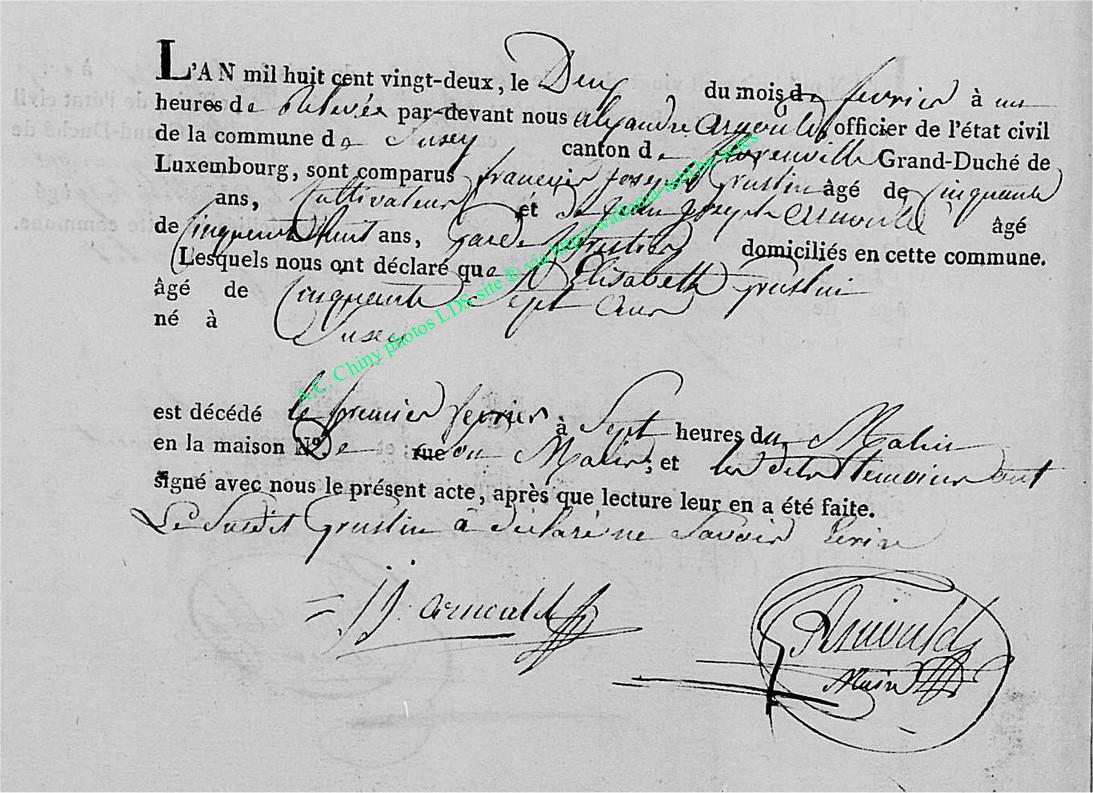 L'AN mil huit cent vingt-deux, le Deux du mois de fevrier à un
heures de Relevée par-devant nous alexandre arnould officier de l'état civil
de la commune de Suxey canton de florenville Grand-Duché de
Luxembourg, sont comparus françois Joseph Grustin âgé de Cinquante
ans, Cultivateur et de jean joseph arnould âgé
de Cinquante huit ans, Garde forestier domiciliés en cette commune.
Lesquels nous ont déclaré que Elisabeth Grustin
âgé de Cinquante Sept Ans
né à Suxey
est décédé le premier fevrier à Sept heures du Matin
en la maison N° rue du Matin; et les dits temoins ont
signé avec nous le présent acte, après que lecture leur en a été faite.
Le Susdit Grustin à déclaré ne Savoir Ecrire
J J. arnould
Arnould
Maire
A.C. Chiny photos LDS site ® via http://wallonia-asbl.be/sites